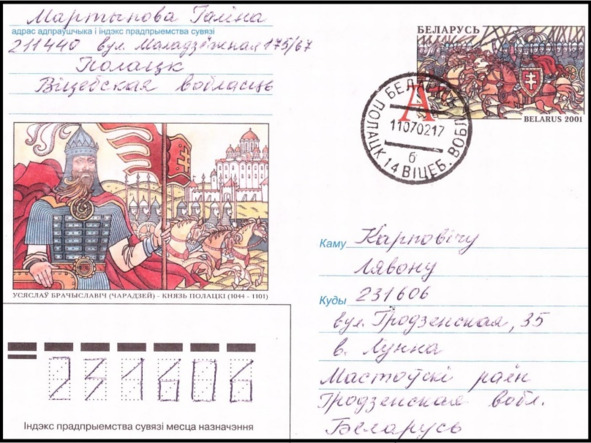 Мартынова Галіна
адрас адпраўшчыка і індэкс прадпрыемства сувязі
211440 вул. Маладзёжная 175/67
Полацк
Віцебская вобласць
БЕЛАРУСЬ
A
BELARUS 2001
ПОШТА БЕЛАРУСІ
11070217
б
ПОЛАЦК 14 ВІЦЕБ. ВОБЛ.
УСЯСЛАЎ БРАЧЫСЛАВІЧ (ЧАРАДЗЕЙ) - КНЯЗЬ ПОЛАЦКІ (1044 - 1101)
Каму Карповічу
Лявону
Куды 231606
вул. Гродзенская, 35
в. Лунна
Мастоўскі раён
Гродзенская вобл.
Беларусь
231606
Індэкс прадпрыемства сувязі месца назначэння